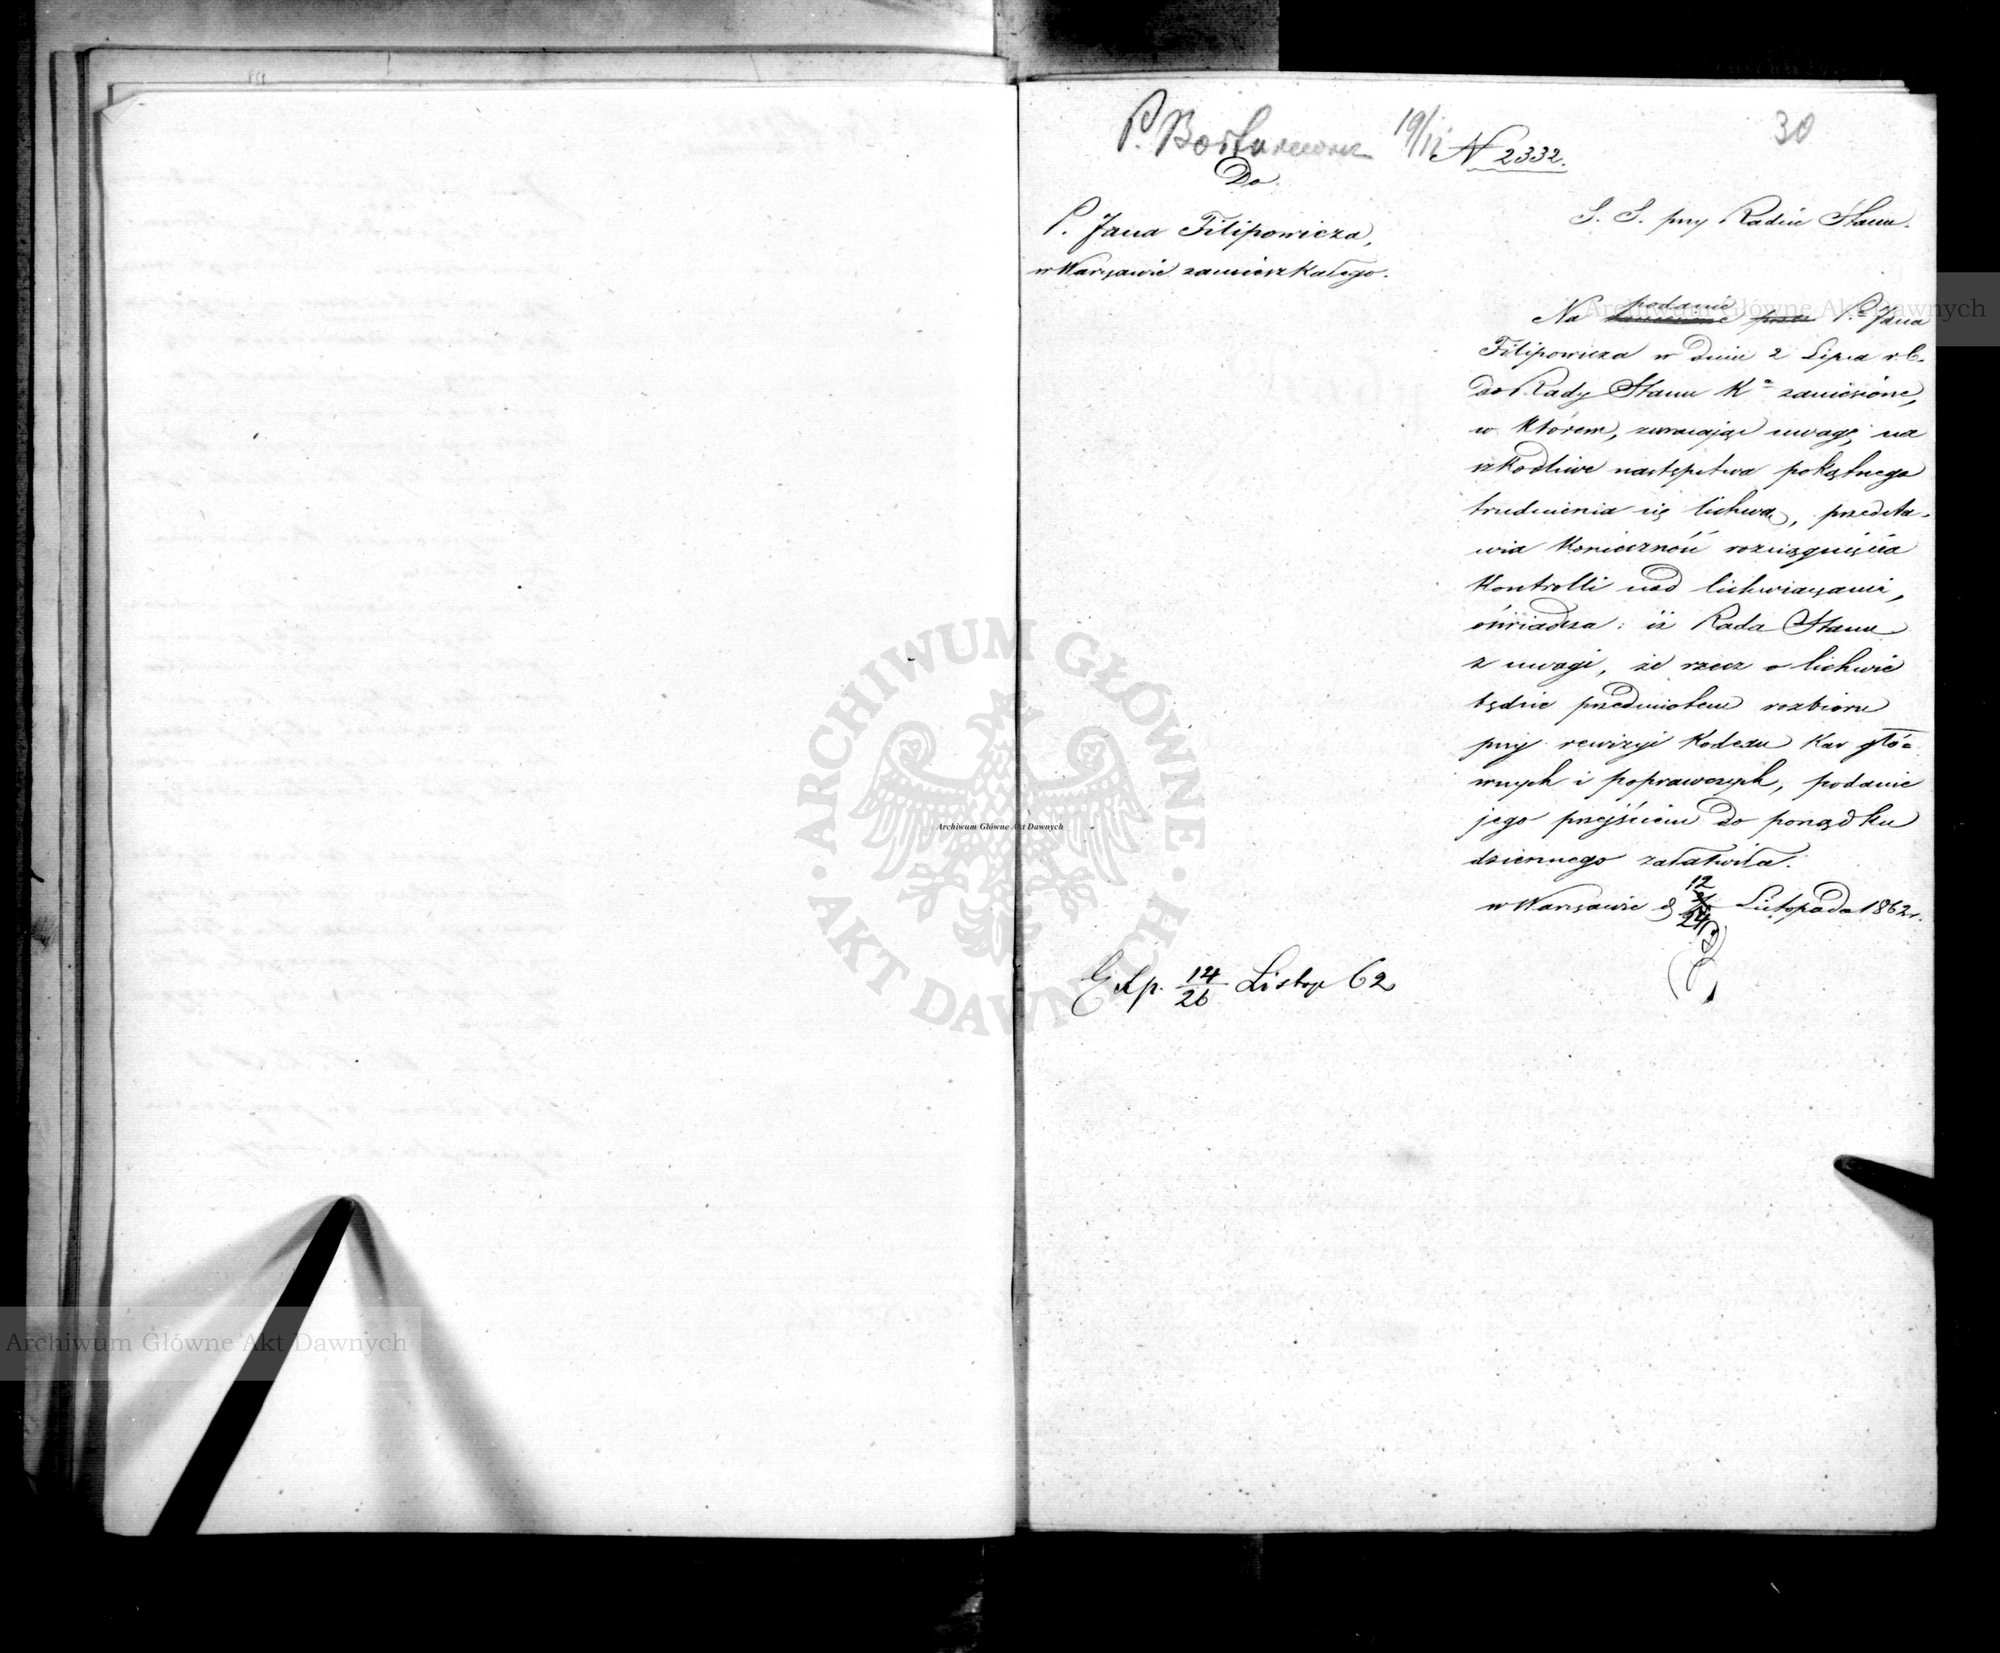 30
19/11 N 2332.
Do
P. Jana Filipowicza,
w Warszawie zamieszkałego.
S. S. przy Radzie Stanu.
Na podanie P. Jana
Filipowicza w dniu 2 Lipca r. b.
do Rady Stanu K° zaniesione,
w którem, zwracając uwagę na
szkodliwe następstwa pokątnego
trudnienia się lichwą, przedsta-
wia konieczność rozciągnięcia
kontrolli nad lichwiarzami,
oświadcza: iż Rada Stanu
z uwagi, że rzecz o lichwie
będzie przedmiotem rozbioru
przy rewizyi Kodexu Kar głó-
wnych i poprawczych, podanie
jego przejściem do porządku
dziennego załatwiła.
w Warszawie d 12/24 Listopada 1862 r.
Exp. 14/26 Listop 62
Archiwum Główne Akt Dawnych
ARCHIWUM GŁÓWNE · AKT DAWNYCH ·
Archiwum Główne Akt Dawnych
Archiwum Główne Akt Dawnych